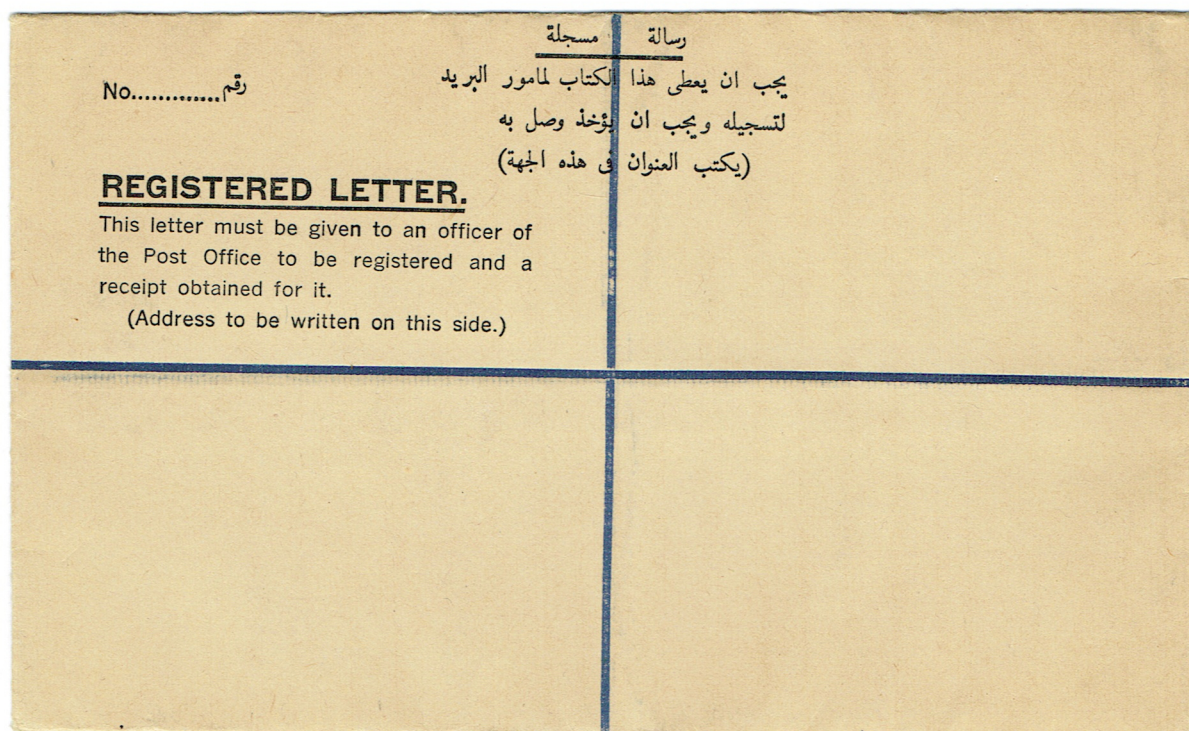 رسالة مسجلة
يجب ان يعطى هذا الكتاب لمامور البريد
لتسجيله ويجب ان يؤخذ وصل به
(يكتب العنوان فى هذه الجهة)
No.............رقم
REGISTERED LETTER.
This letter must be given to an officer of
the Post Office to be registered and a
receipt obtained for it.
(Address to be written on this side.)